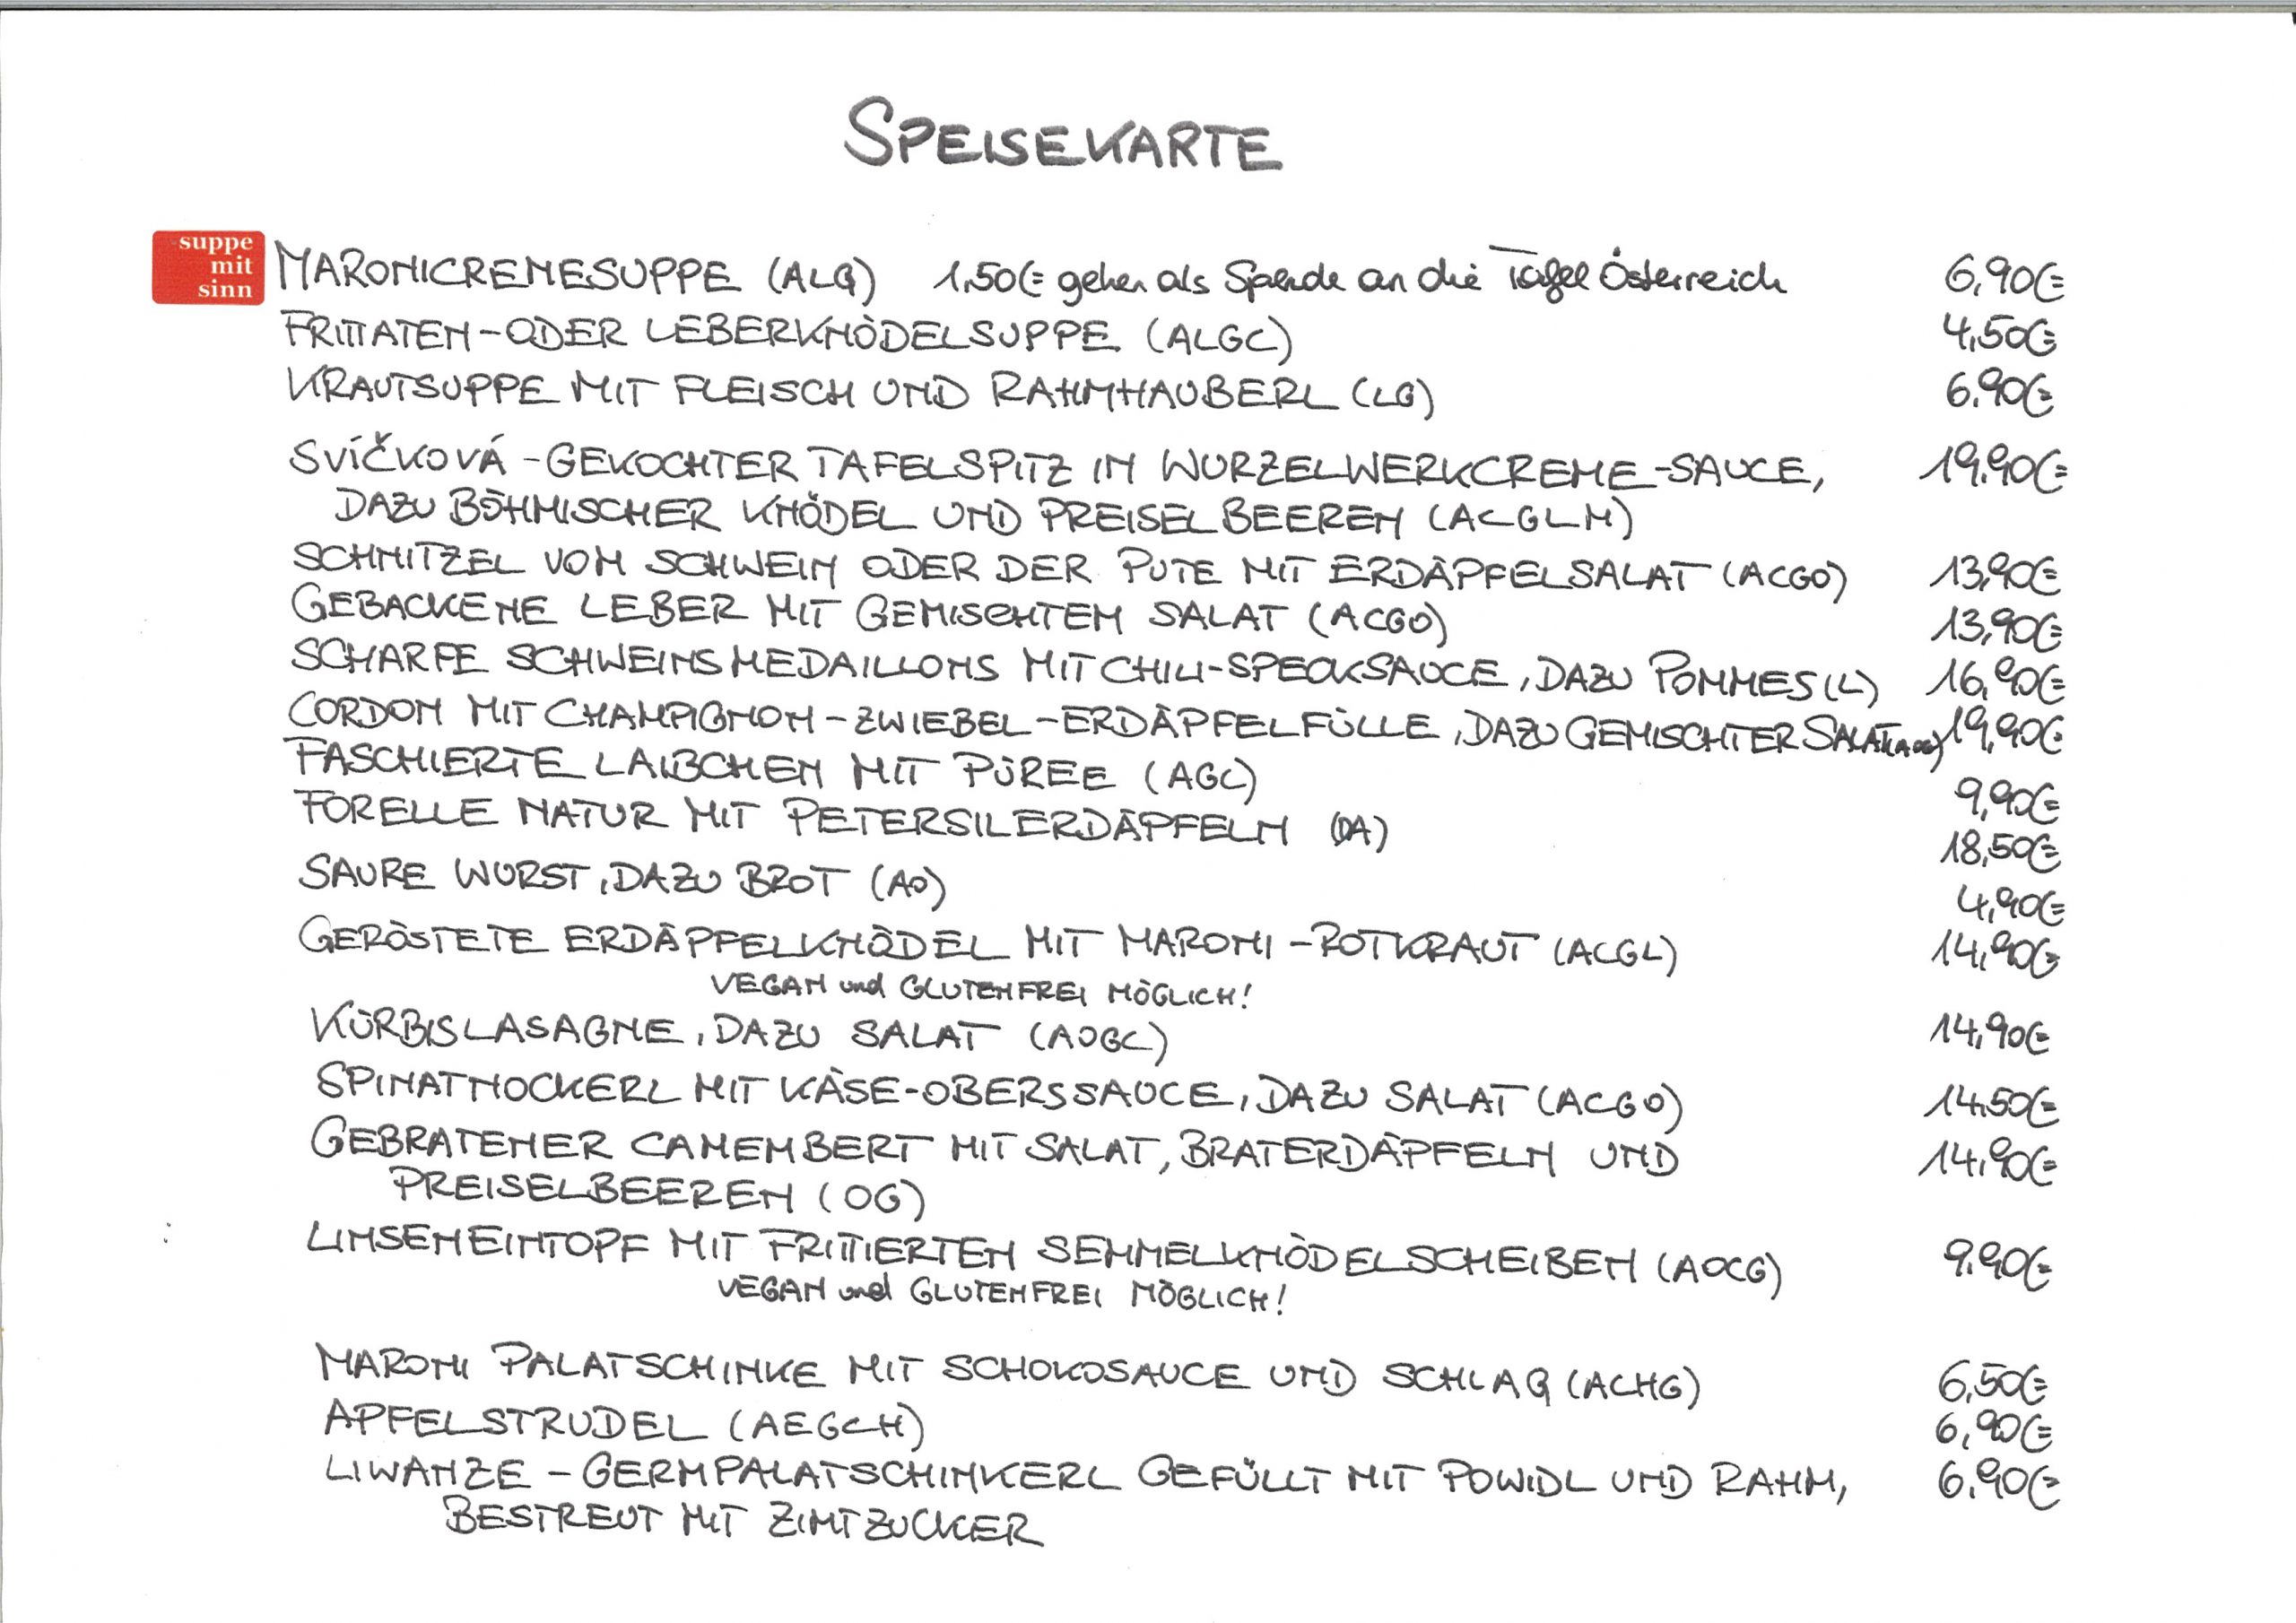 SPEISEKARTE
suppe
mit
sinn
MARONICREMESUPPE (ALG) 1,50€ gehen als Spende an die Tafel Österreich 6,90€
FRITTATEN-ODER LEBERKNÖDELSUPPE (ALGC) 4,50€
KRAUTSUPPE MIT FLEISCH UND RAHMHAUBERL (LG) 6.90€
SVÍČKOVÁ - GEKOCHTER TAFELSPITZ IN WURZELWERKCREME-SAUCE, 19.90€
DAZU BÖHMISCHER KNÖDEL UND PREISELBEEREN (ACGLM)
SCHNITZEL VOM SCHWEIN ODER DER PUTE MIT ERDÄPFELSALAT (ACGO) 13,90€
GEBACKENE LEBER MIT GEMISCHTEM SALAT (ACGO) 13,90€
SCHARFE SCHWEINSMEDAILLONS MIT CHILI-SPECKSAUCE, DAZU POMMES (L) 16,90€
CORDON MIT CHAMPIGNON-ZWIEBEL-ERDÄPFELFÜLLE, DAZU GEMISCHTER SALAT 19,90€
FASCHIERTE LAIBCHEN MIT PÜREE (AGC) 9,90€
FORELLE NATUR MIT PETERSILERDÄPFELN (DA) 18,50€
SAURE WURST, DAZU BROT (AO) 4,90€
GERÖSTETE ERDÄPFELKNÖDEL MIT MARONI-ROTKRAUT (ACGL) 14,90€
VEGAN und GLUTENFREI MÖGLICH!
KÜRBISLASAGNE, DAZU SALAT (AOGC) 14,90€
SPINATNOCKERL MIT KÄSE-OBERSSAUCE, DAZU SALAT (ACGO) 14.50€
GEBRATENER CAMEMBERT MIT SALAT, BRATERDÄPFELN UND 14.90€
PREISELBEEREN (OG)
LINSENEINTOPF MIT FRITTIERTEN SEMMELKNÖDELSCHEIBEN (AOCG) 9.90€
VEGAN und GLUTENFREI MÖGLICH!
MARONI PALATSCHINKE MIT SCHOKOSAUCE UND SCHLAG (ACHG) 6,50€
APFELSTRUDEL (AEGCH) 6,90€
LIWANZE - GERMPALATSCHINKERL GEFÜLLT MIT POWIDL UND RAHM, 6.90€
BESTREUT MIT ZIMTZUCKER